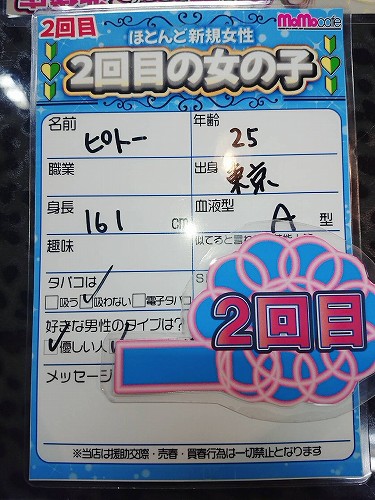 2回目
MoMocafe
ほとんど新規女性
2回目の女の子
名前
ピトー
年齢
25
職業
出身
東京
身長
161 cm
血液型
A 型
趣味
似てると言わ
タバコは
吸う 吸わない 電子タバコ
S
2回目
好きな男性のタイプは?
優しい人
メッセージ
※当店は援助交際・売春・買春行為は一切禁止となります